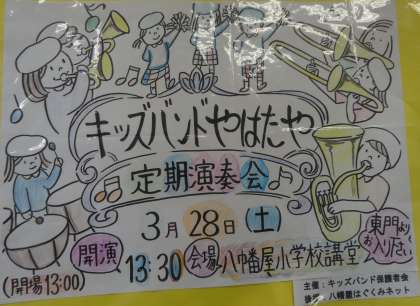 キッズバンドやはたや
定期演奏会
3月28日(土)
開演 13:30 会場 八幡屋小学校講堂
(開場13:00)
東門より
お入り下さい
主催:キッズバンド保護者会
八幡屋はぐくみネット